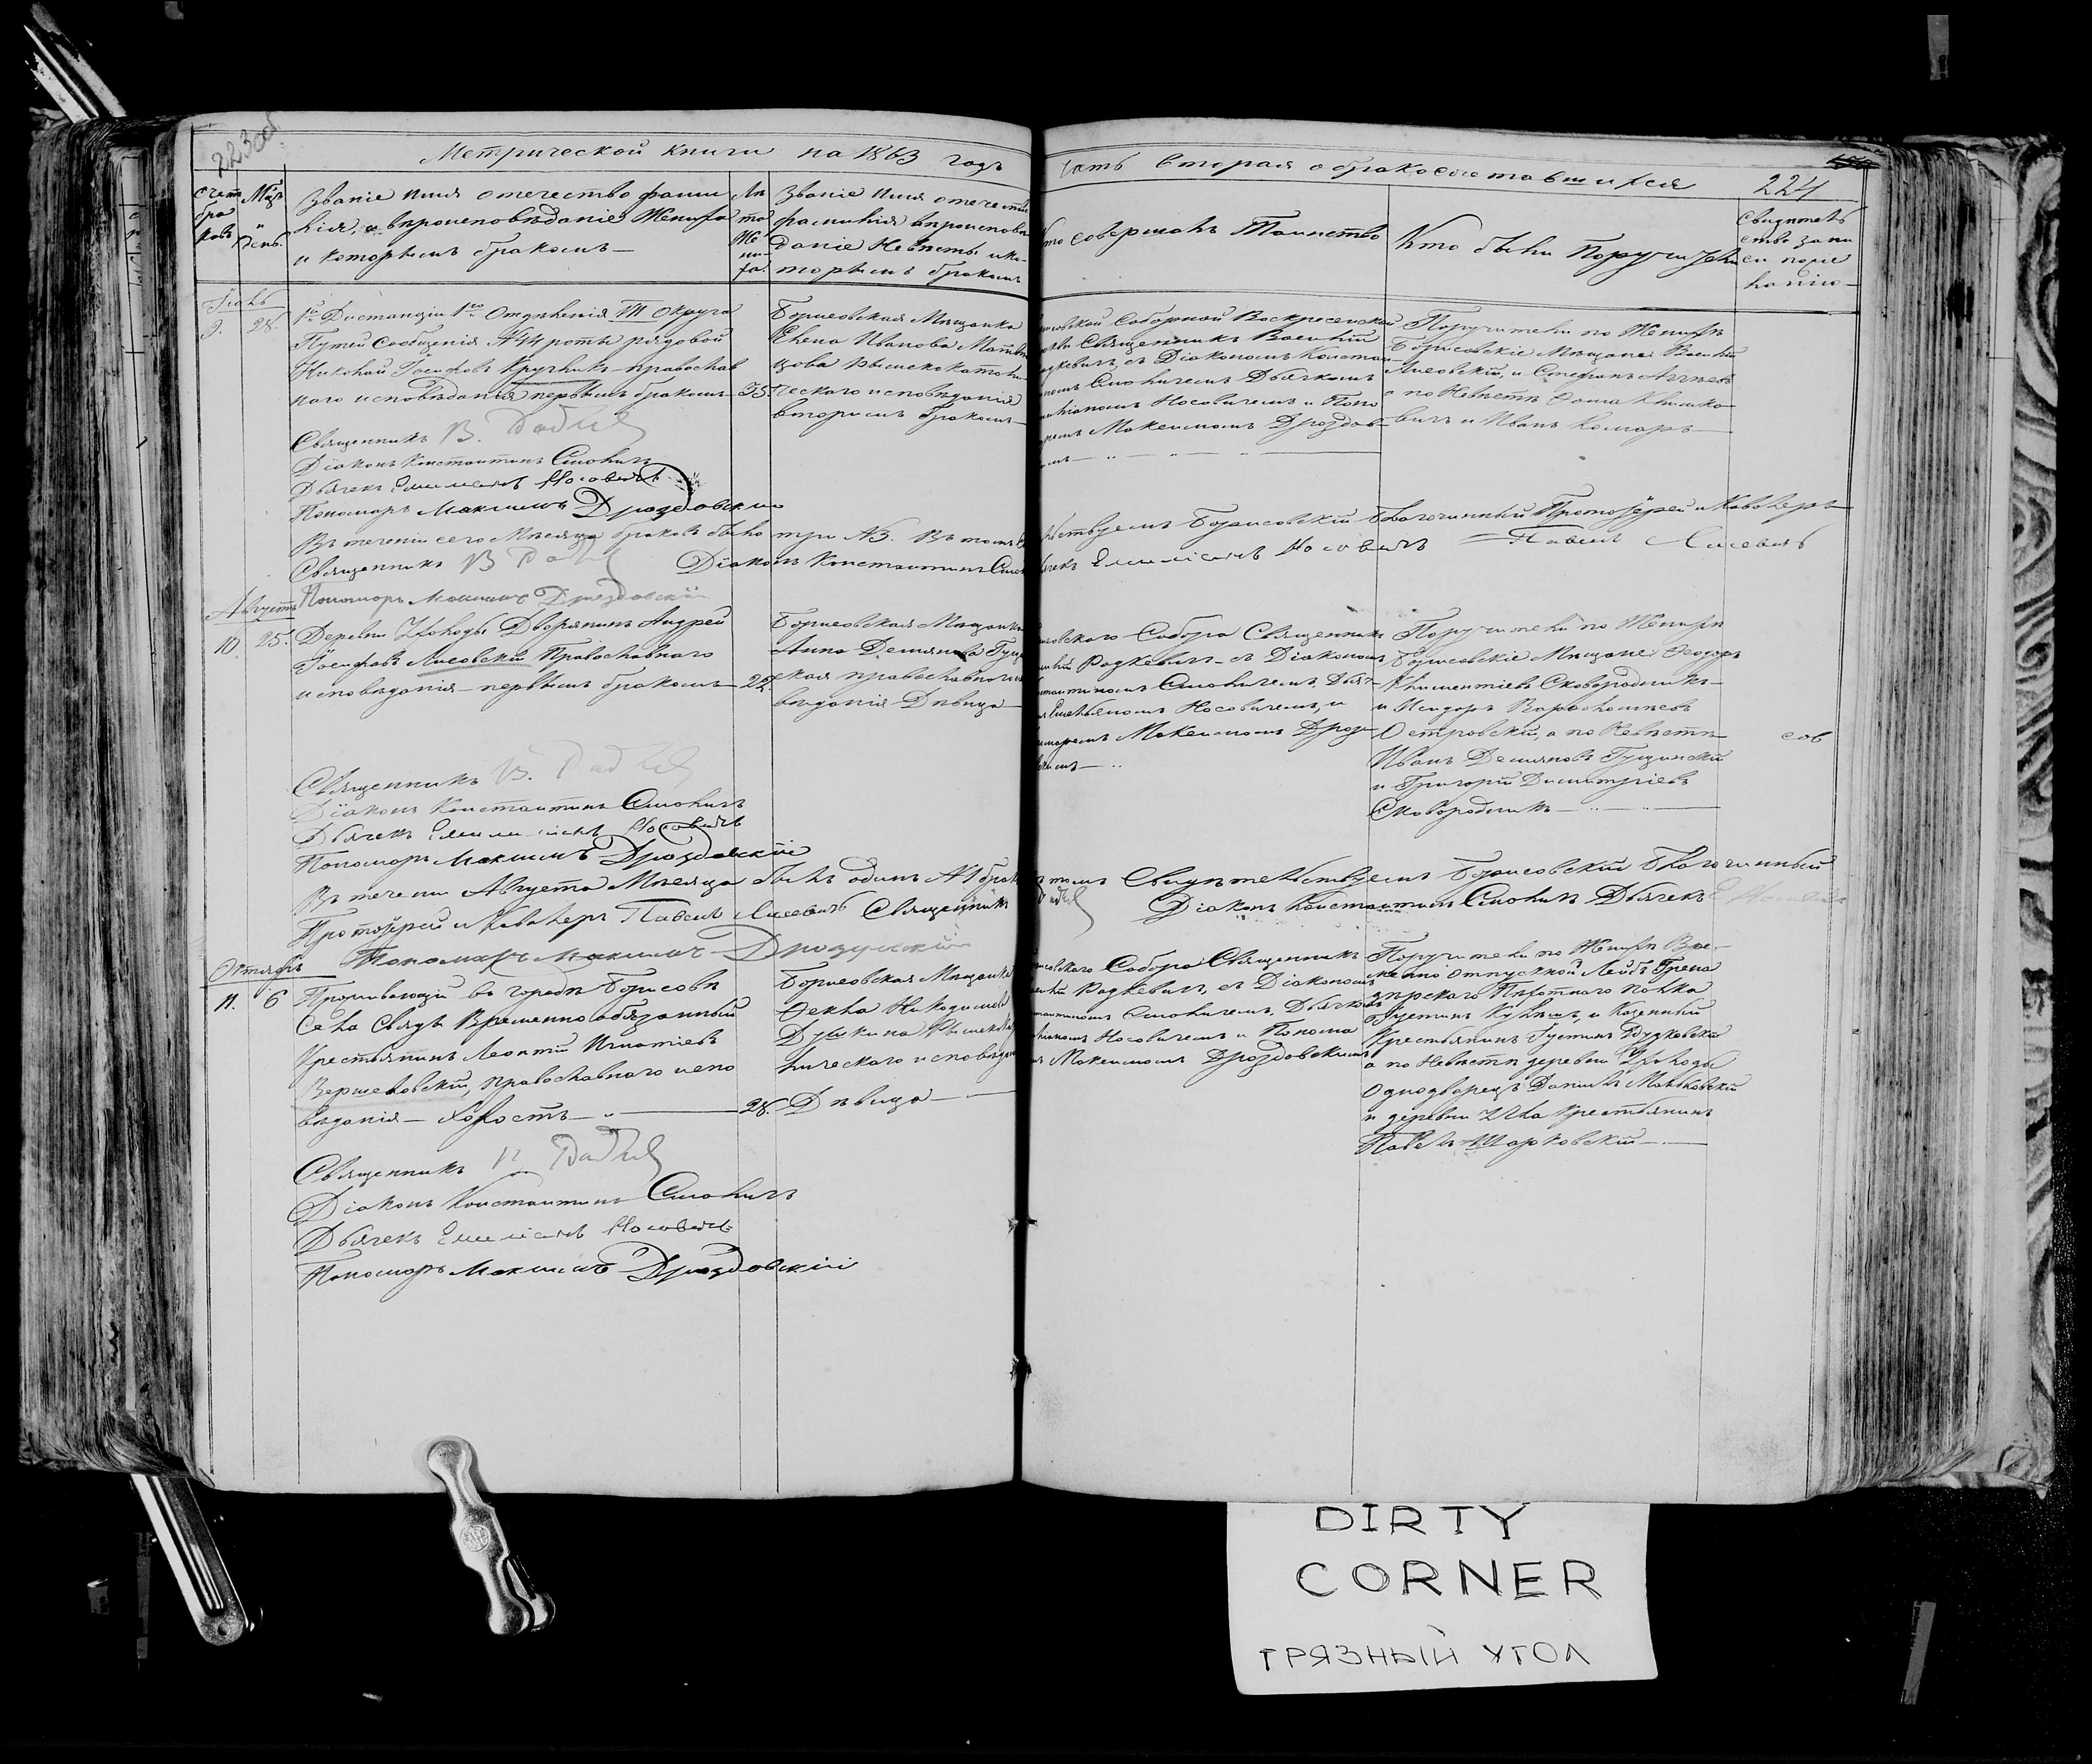 223 об
Метрической книги на 1863 годъ
Часть вторая о бракосочетавшихся
224
Счетъ браковъ
Мѣс. и день
Званіе имя отечество фами
лія, и вѣроисповѣданіе Жениха
и которымъ бракомъ
Лѣта Жениха.
Званіе имя отечество
фамилія вѣроисповѣ
даніе Невѣсты и ко-
торымъ бракомъ
Кто совершалъ Таинство
Кто были Поручители
Свидѣтель
ство запи
си по же
ланію
Іюль
9. 28.
1й Дистанціи 1го Отдѣленія VII Округа
Путей Сообщенія роты рядовой
Николай Іосифовъ Кручикъ православ
наго исповѣданія первымъ бракомъ 35.
Борисовская Мѣщанка
Елена Иванова
цова Римско Католи
ческаго исповѣданія
вторымъ бракомъ
Соборной Воскресенской
Священникъ Василій
съ Діакономъ Констан
Смоличемъ Дьячкомъ
Носовичемъ и Поно
Максимомъ Дроздов
Поручители по Женихѣ
Борисовскіе Мѣщане Василій
Лисовскій, и Стефанъ
а по Невѣстѣ Фома Климко
вичъ и Иванъ Комаръ
Священникъ В. Радкев
Діаконъ Константинъ Смоличъ
Дьячекъ Емиліанъ Носовичъ
Пономарь Максимъ Дроздовскій
Въ теченіи сего Мѣсяца браковъ было три №3. Въ томъ
Борисовскій Благочинный Протоіерей и Кавалеръ
Священникъ В Радк Діаконъ Константинъ Смо
Емиліанъ Носовичъ Павелъ Лисевичъ
Пономарь Максимъ Дроздовскій
Августъ
10. 25.
Деревни Уколоды Дворянинъ Андрей
Іосифовъ Лисовскій Православнаго
исповѣданія первымъ бракомъ 22.
Борисовская Мѣщанка
Анна Демянова Гущ
ская православнаго
вѣданія Дѣвица
Собора Священникъ
Радкевичъ съ Діакономъ
Смоличемъ, Дьяч
Носовичемъ, и
Максимомъ Дроз
Поручители по Женихѣ
Борисовскіе Мѣщане Ѳеодоръ
Климентіевъ Сковородникъ
и Исидоръ Варѳоломеевъ
Островскій, а по Невѣстѣ
Иванъ Демяновъ Гущинскій
и Григорій Димитріевъ
Сковородникъ
Священникъ В. Радкев
Діаконъ Константинъ Смоличъ
Дьячекъ Емиліанъ Носовичъ
Пономарь Максимъ Дроздовскій
Въ теченіи Августа Мѣсяца былъ одинъ №1 бракъ
въ томъ Свидѣтельствуемъ Борисовскій Благочинный
Протоіерей и Кавалеръ Павелъ Лисевичъ Священникъ
Діаконъ Константинъ Смоличъ Дьячекъ Е Носовичъ
Пономарь Максимъ Дроздовскій
Октябрь
11. 6
Проживающій въ городѣ Борисовѣ
Села Свядъ Временно обязанный
Крестьянинъ Леонтій Игнатіевъ
Вершеловскій, православнаго испо
вѣданія холостъ 28.
Борисовская Мѣщанка
Ѳекла Никодимова
Душкина Римско
лическаго исповѣдан
Дѣвица
Собора Священникъ
Радкевичъ, съ Діакономъ
Смоличемъ, Дьячкомъ
Носовичемъ и Понома
Максимомъ Дроздовскимъ
Поручители по Женихѣ Вре-
менно отпускной Лейбъ Грена
дерскаго Пѣхотнаго полка
Іустинъ и Казенный
Крестьянинъ Іустинъ Будковскій
а по Невѣстѣ деревни Уколоды
Однодворецъ Даніилъ Маньковскій
и деревни Уша Крестьянинъ
Павелъ Шарковскій
Священникъ В Радкев
Діаконъ Константинъ Смоличъ
Дьячекъ Емиліанъ Носовичъ
Пономарь Максимъ Дроздовскій
DIRTY
CORNER
ГРЯЗНЫЙ УГОЛ